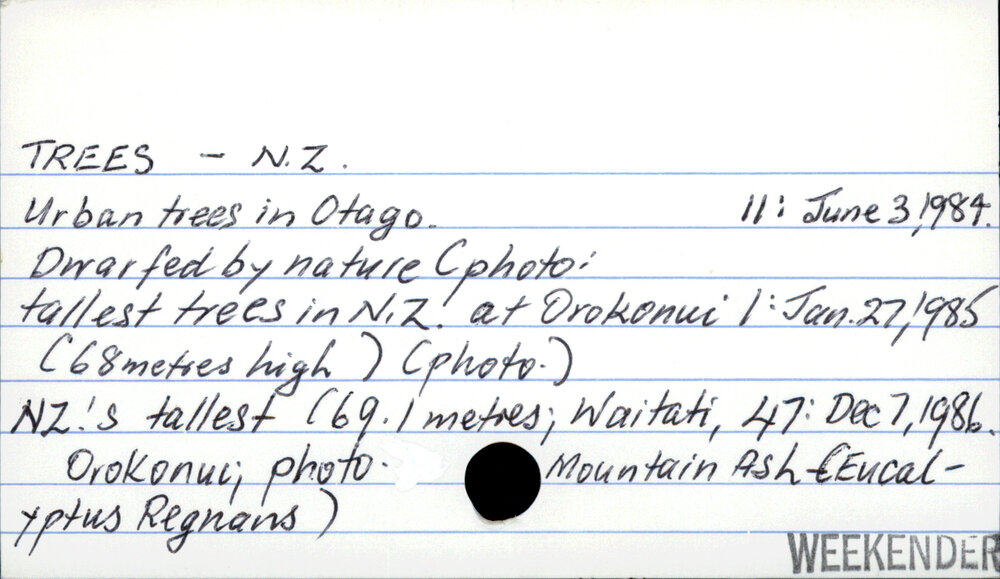 TREES - N.Z.
Urban trees in Otago. 11: June 3, 1984.
Dwarfed by nature (photo:
tallest trees in N.Z. at Orokonui 1: Jan. 27, 1985
(68 metres high) (photo.)
NZ!s tallest (69.1 metres; Waitati, 47: Dec 7, 1986.
Orokonui; photo. Mountain Ash - (Eucal-
yptus Regnans)
WEEKENDER